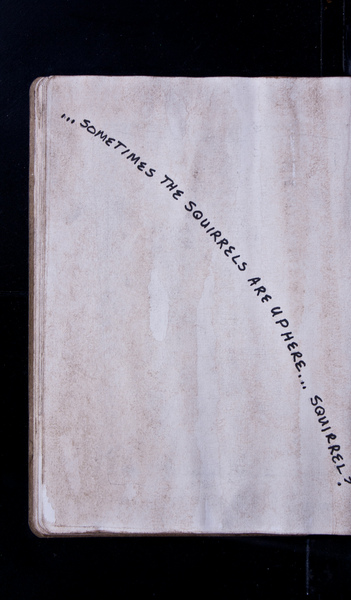 ... SOMETIMES THE SQUIRRELS ARE UP HERE... SQUIRREL?